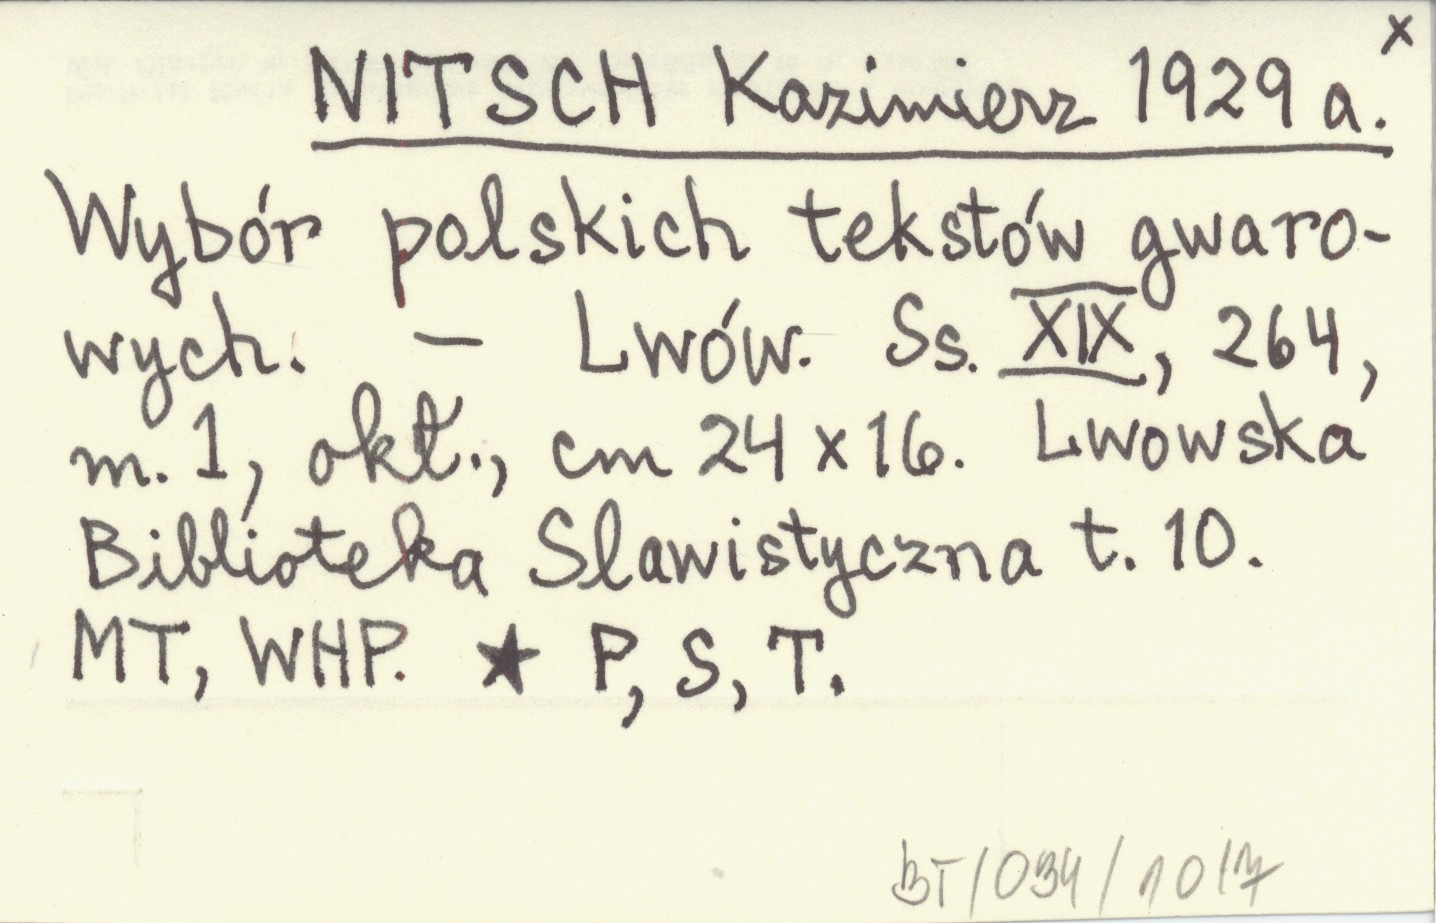 x
NITSCH Kazimierz 1929 a.
Wybór polskich tekstów gwaro-
wych. — Lwów. Ss. XIX, 264,
m. 1, okł., cm 24 x 16. Lwowska
Biblioteka Slawistyczna t. 10.
MT, WHP. ★ P, S, T.
BT/034/10/7